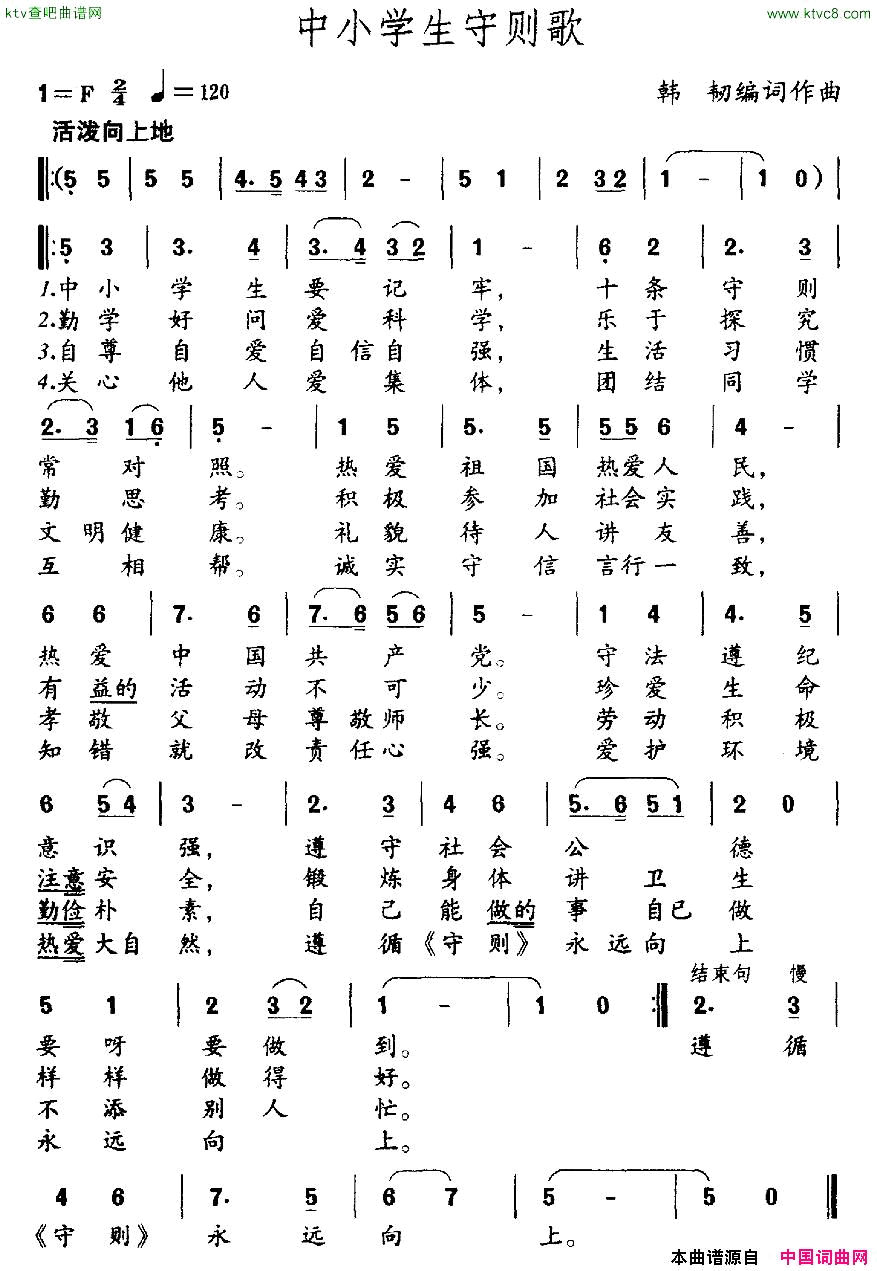 ktv查吧曲谱网
www.ktvc8.com
中小学生守则歌
1=F 2/4 ♩=120
韩 韧编词作曲
活泼向上地
‖:(5 5 | 5 5 | 4. 5 4 3 | 2 - | 5 1 | 2 3 2 | 1 - | 1 0) |
‖:5 3 | 3. 4 | 3. 4 3 2 | 1 - | 6 2 | 2. 3 |
1.中小学生要记牢，十条守则
2.勤学好问爱科学，乐于探究
3.自尊自爱自信自强，生活习惯
4.关心他人爱集体，团结同学
2. 3 1 6 | 5 - | 1 5 | 5. 5 | 5 5 6 | 4 - |
常对照。热爱祖国热爱人民，
勤思考。积极参加社会实践，
文明健康。礼貌待人讲友善，
互相帮。诚实守信言行一致，
6 6 | 7. 6 | 7. 6 5 6 | 5 - | 1 4 | 4. 5 |
热爱中国共产党。守法遵纪
有益的活动不可少。珍爱生命
孝敬父母尊敬师长。劳动积极
知错就改责任心强。爱护环境
6 5 4 | 3 - | 2. 3 | 4 6 | 5. 6 5 1 | 2 0 |
意识强，遵守社会公德
注意安全，锻炼身体讲卫生
勤俭朴素，自己能做的事自已做
热爱大自然，遵循《守则》永远向上
结束句 慢
5 1 | 2 3 2 | 1 - | 1 0 :‖ 2. 3 |
要呀要做到。遵循
样样做得好。
不添别人忙。
永远向上。
4 6 | 7. 5 | 6 7 | 5 - | 5 0 ‖
《守则》永远向上。
本曲谱源自 中国词曲网